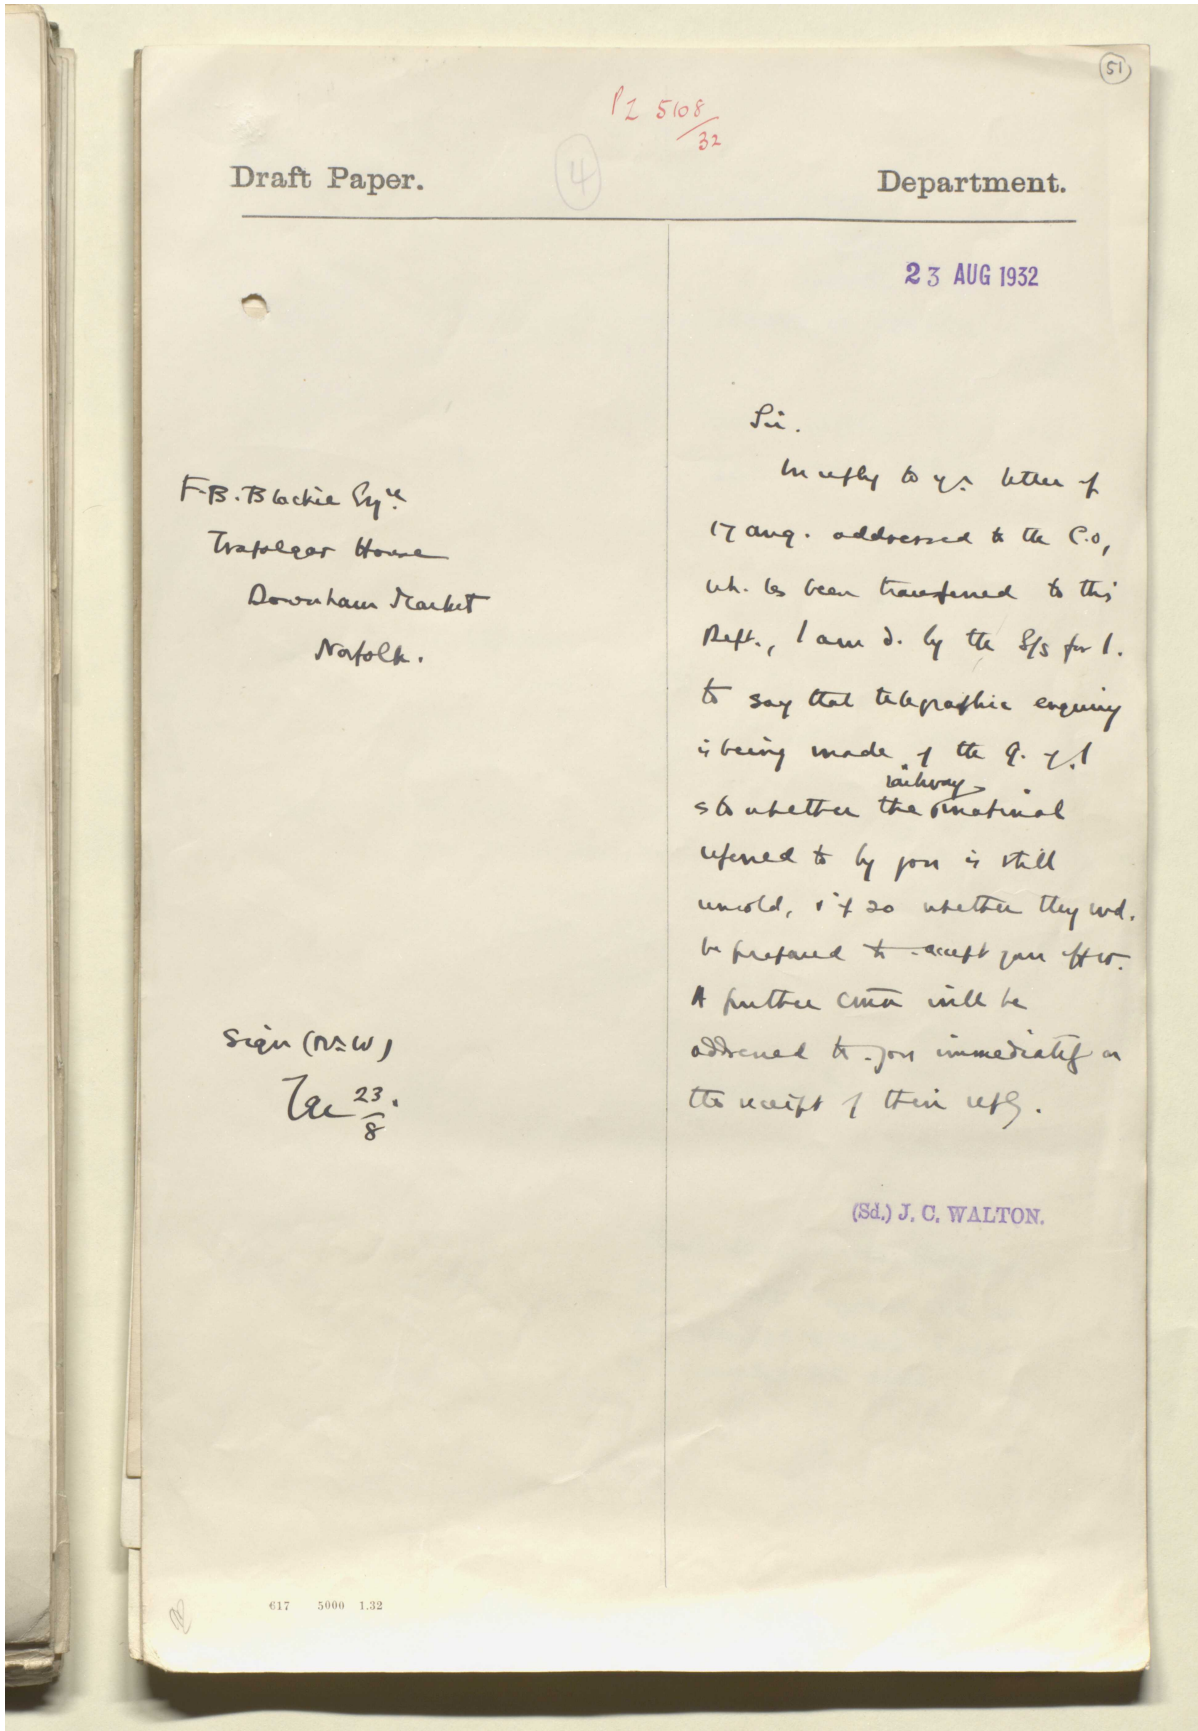 51
PZ 5108/32
4
Draft Paper.
Department.
23 AUG 1932
F.B. Blackie Esqre
Trafalgar House
Downham Market
Norfolk.
Sir.
In reply to yr. letter of
17 Aug. addressed to the C.O,
wh. has been transferred to this
Dept., I am d. by the S/S for I.
to say that telegraphic enquiry
is being made of the G. of I
as to whether the railway material
referred to by you is still
unsold, & if so whether they wd.
be prepared to accept your offer.
A further cmn will be
addressed to you immediately on
the receipt of their reply.
Sign (Mr W)
23/8
(Sd.) J. C. WALTON.
617 5000 1.32